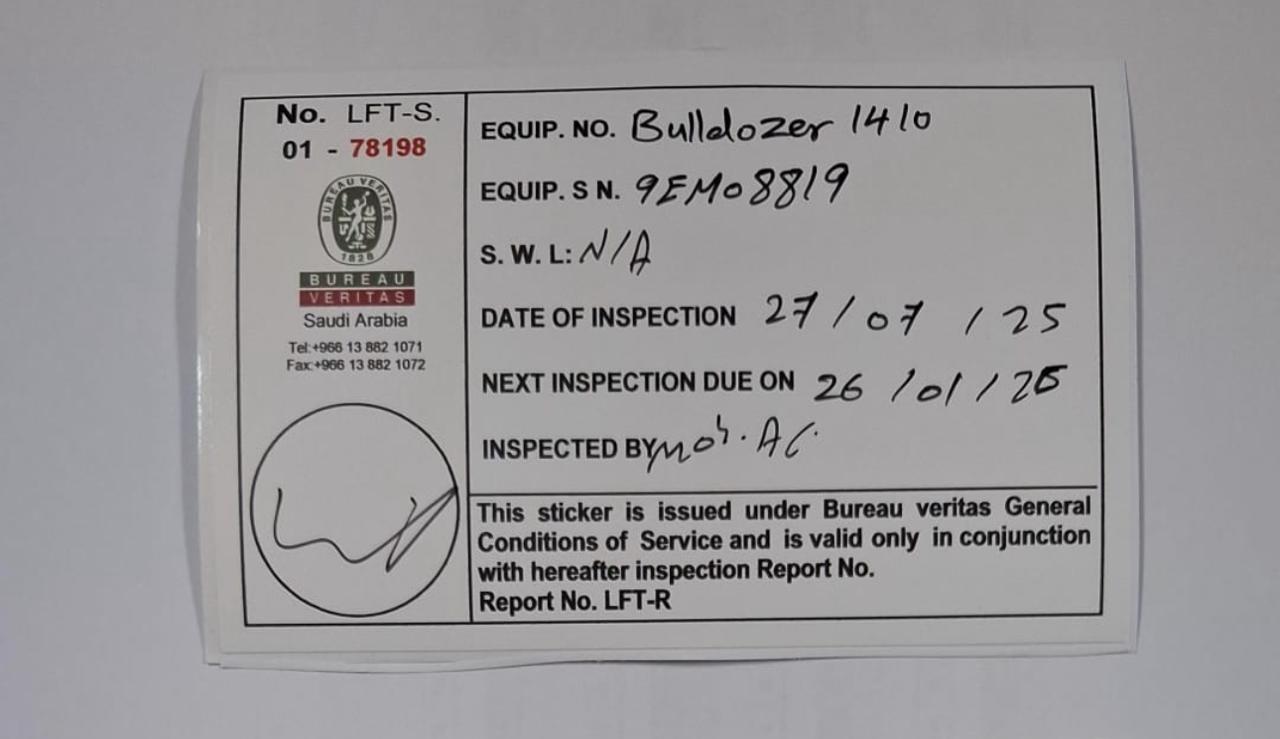 No. LFT-S.
01 - 78198
BUREAU VERITAS
1828
BUREAU
VERITAS
Saudi Arabia
Tel:+966 13 882 1071
Fax:+966 13 882 1072
EQUIP. NO. Bulldozer 1410
EQUIP. S N. 9EM08819
S. W. L: N/A
DATE OF INSPECTION 27/07/25
NEXT INSPECTION DUE ON 26/01/26
INSPECTED BY Moh. A
This sticker is issued under Bureau veritas General
Conditions of Service and is valid only in conjunction
with hereafter inspection Report No.
Report No. LFT-R